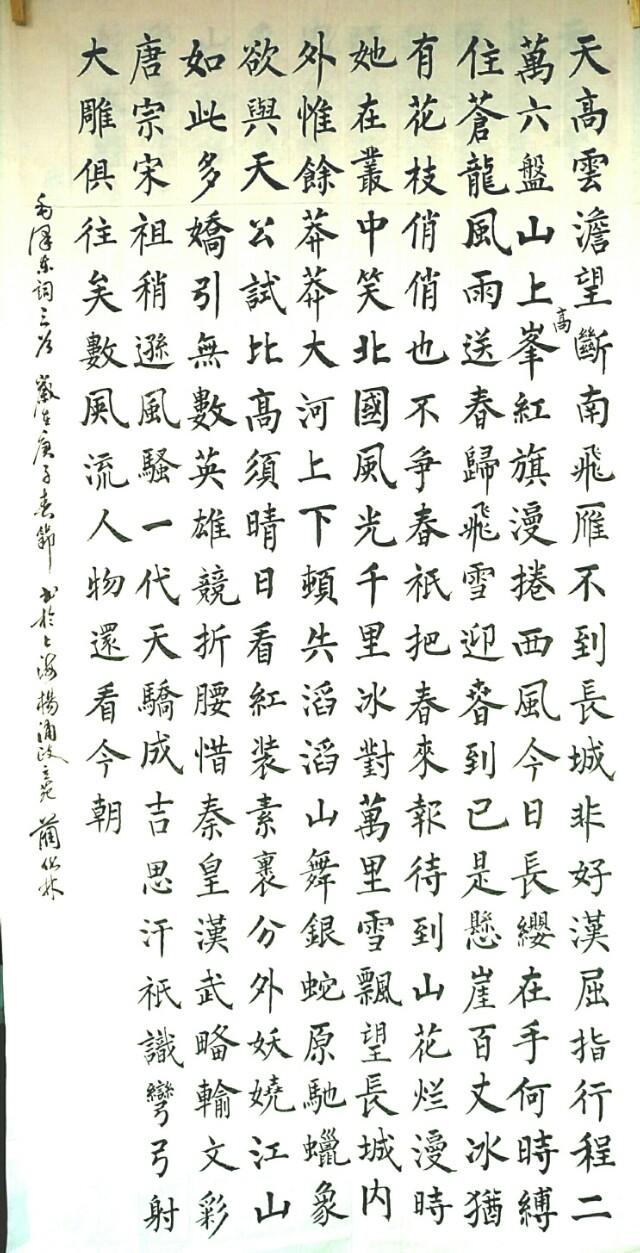 天高雲澹望斷南飛雁不到長城非好漢屈指行程二
萬六盤山上高峯紅旗漫捲西風今日長纓在手何時縛
住蒼龍風雨送春歸飛雪迎春到已是懸崖百丈冰猶
有花枝俏俏也不爭春祇把春來報待到山花烂漫時
她在叢中笑北國風光千里冰對萬里雪飄望長城内
外惟餘莽莽大河上下頓失滔滔山舞銀蛇原馳蠟象
欲與天公試比高須晴日看紅装素裹分外妖嬈江山
如此多嬌引無數英雄競折腰惜秦皇漢武略輸文彩
唐宗宋祖稍遜風騷一代天驕成吉思汗祇識彎弓射
大雕俱往矣數風流人物還看今朝
毛澤东词三首 歲在庚子春節 书於上海楊浦政立苑